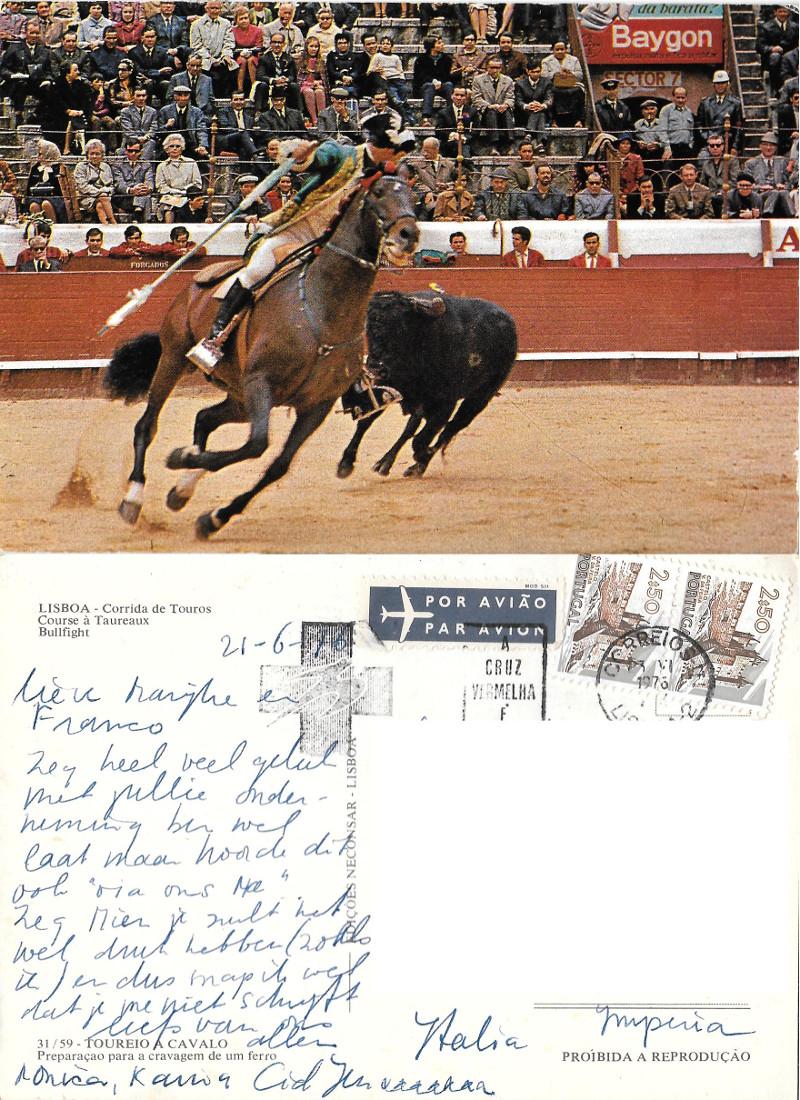 da barata?
Baygon
SECTOR 7
A
FORCADOS
LISBOA - Corrida de Touros
Course à Taureaux
Bullfight
MOD 511
POR AVIÃO
PAR AVION
2$50
PORTUGAL
2$50
PORTUGAL
CORREIOS
VI
1976
A
CRUZ
VERMELHA
É
21-6-76
en
Franco
Zeg heel veel geluk
met jullie onder-
neming ben wel
laat maar hoorde dit
ook "via ons Ma"
Zeg Mien je zult het
wel druk hebben (zoals
ik) en dus snap ik wel
dat je me niet schrijft
liefs van ons
allen
Monica, Karina Cid
Italia Imperia
EDIÇÕES NECONSAR - LISBOA
31/59 - TOUREIO A CAVALO
Preparaçao para a cravagem de um ferro
PROÍBIDA A REPRODUÇÃO